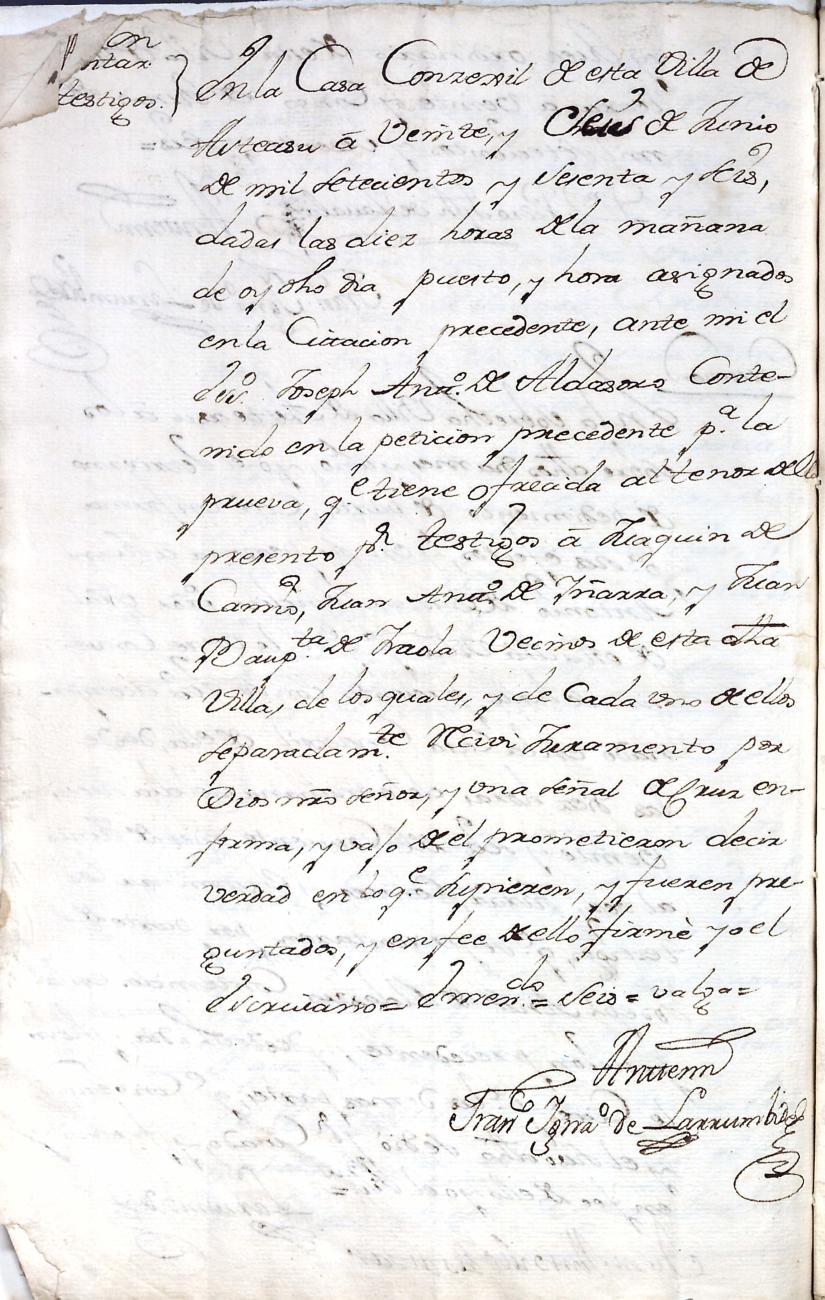 on
ntar
testigos.
En la Casa Conzexil de esta Villa de
Asteasu â Veinte, y Seis de Junio
de mil setecientos y sesenta y seis,
dadas las diez horas de la mañana
de oy dho dia puesto, y hora asignados
en la Citacion precedente, ante mi el
Essno. Joseph Anto. de Aldasoro Conte-
nido en la peticion precedente pa. la
prueva, qe tiene ofrecida al tenor de ella
presento pr. testigos â Juaquin de
Camio, Juan Anto. de Yñarra, y Juan
Baupta. de Iraola Vecinos de esta dha
Villa, de los quales, y de Cada uno de ellos
separadamte. Recivi Juramento por
Dios nro señor, y una señal de Cruz en-
forma, y vajo de el prometieron decir
verdad en lo qe. supieren, y fueren pre-
guntados, y en fee de ello firmè yo el
Escrivano= Emendo= seis= valga=
Antemi
Franco Ignao de Larrumbide